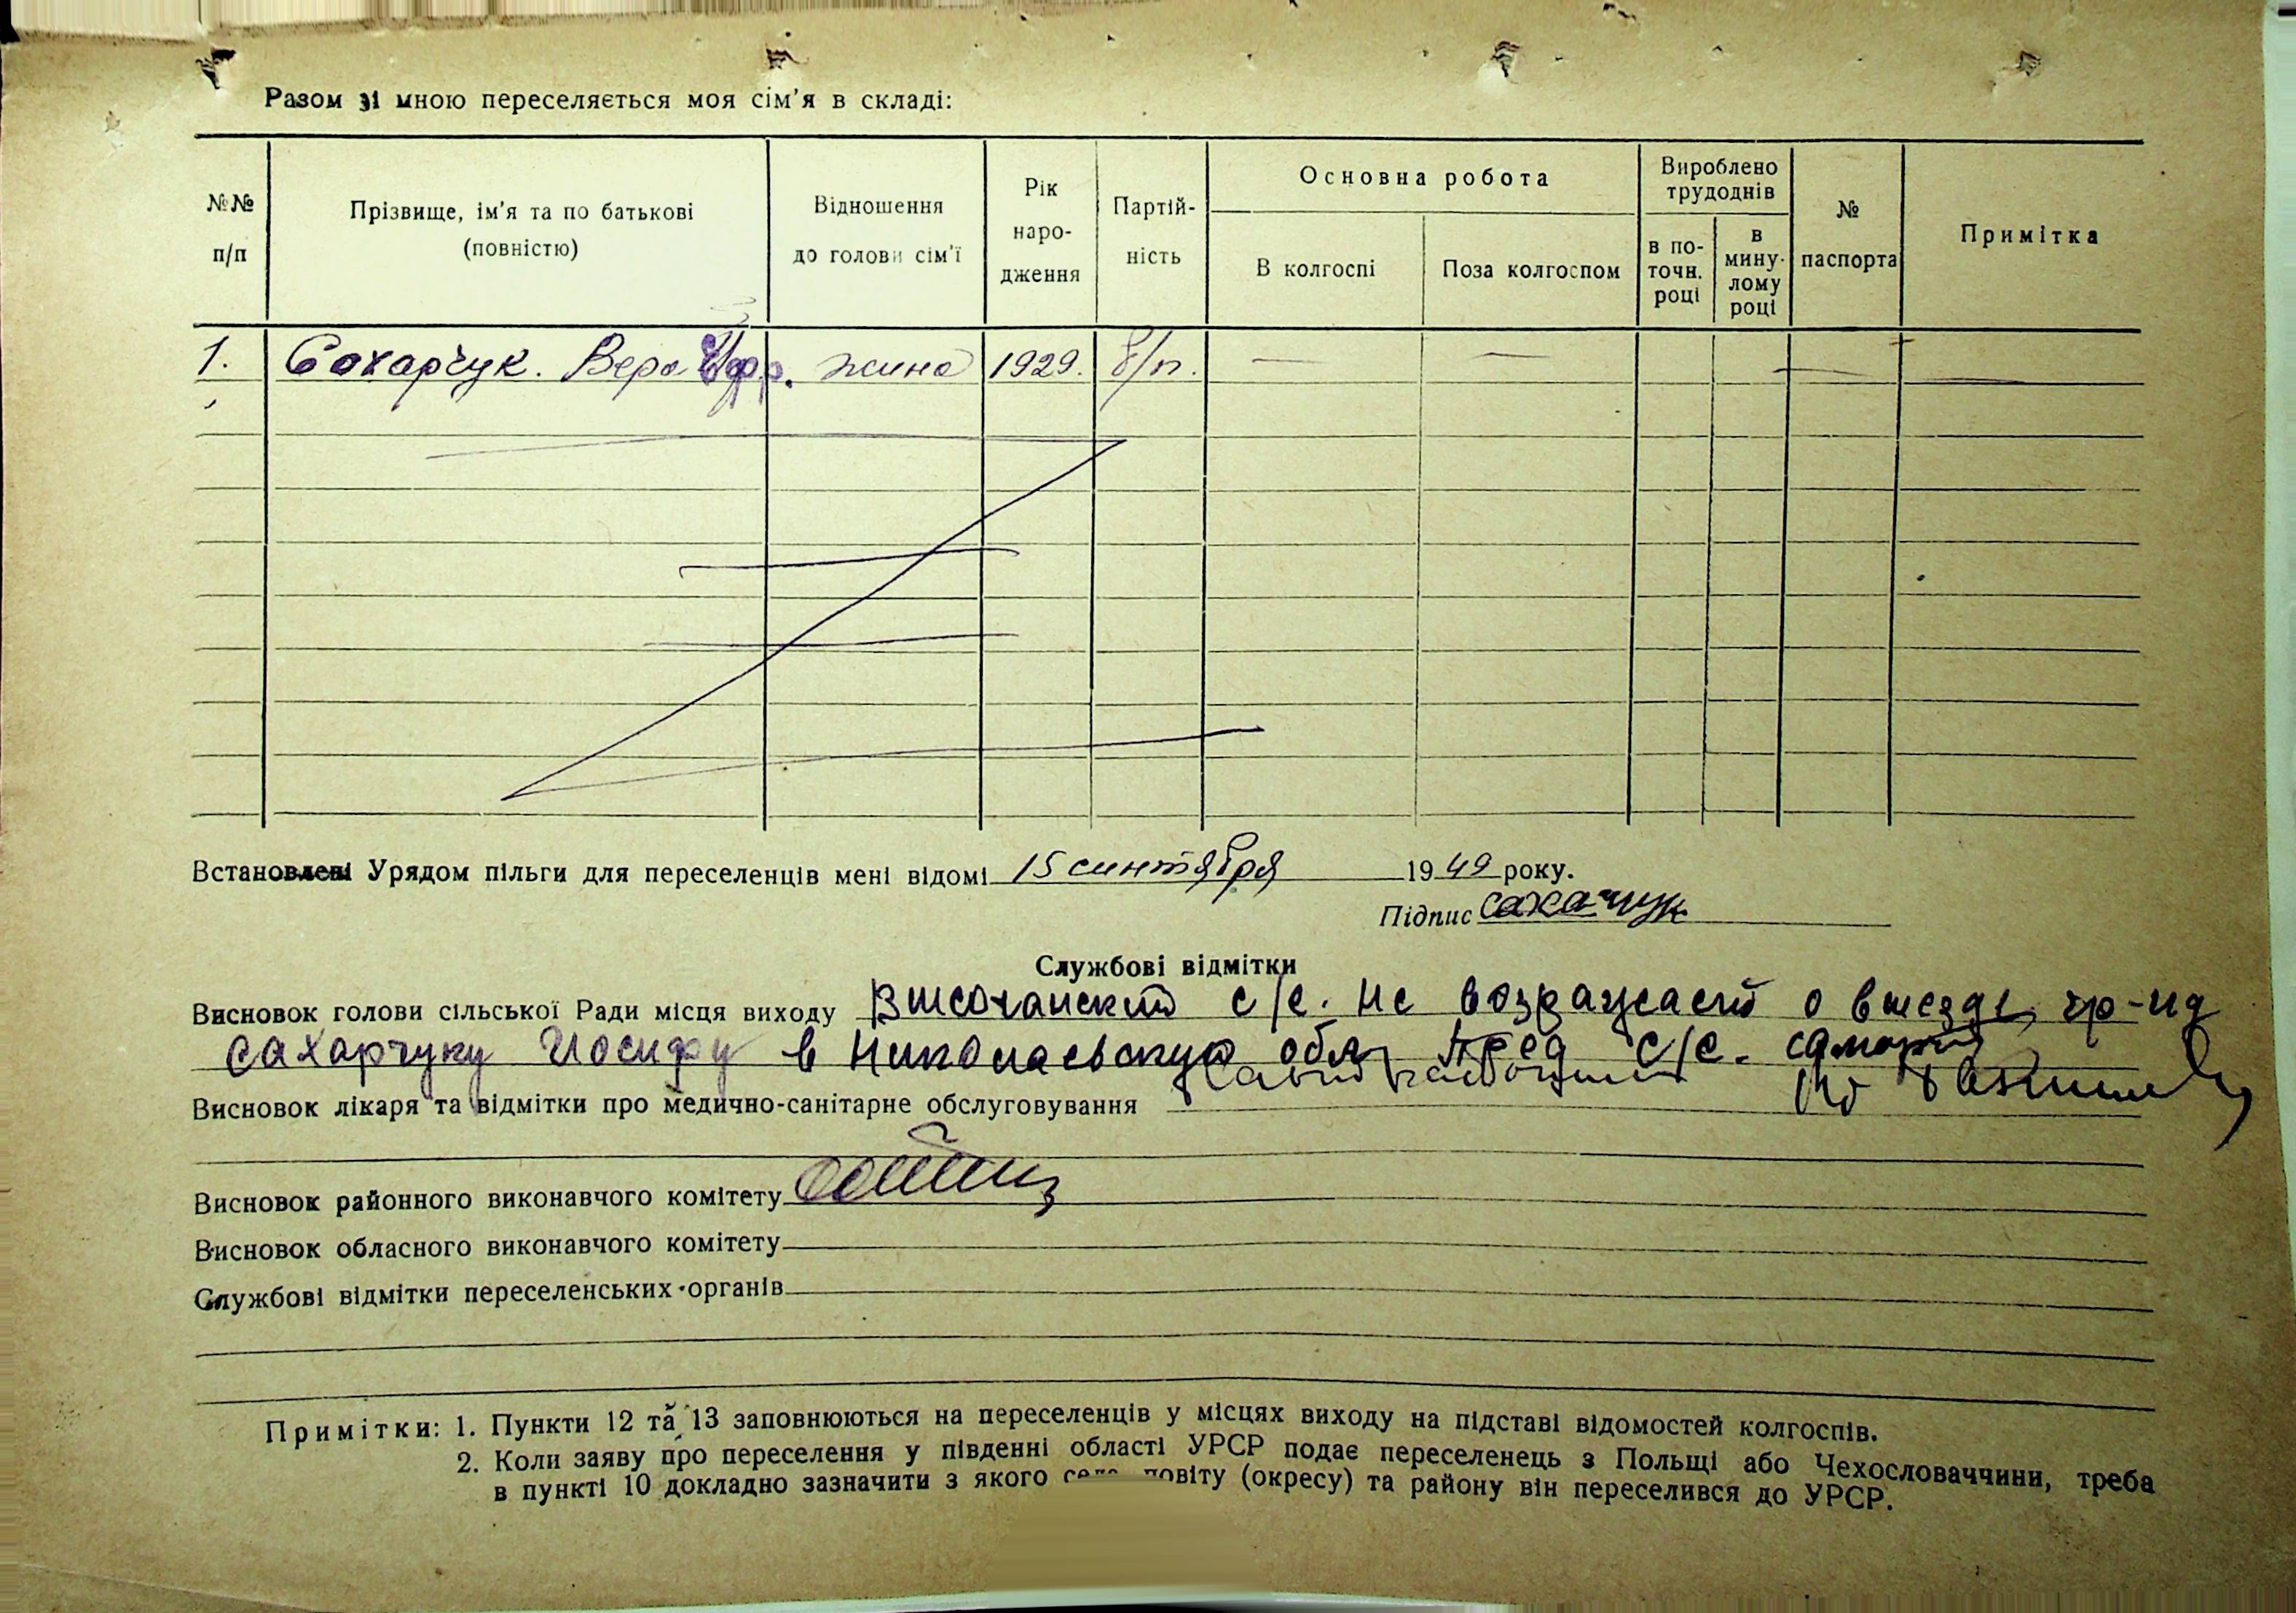 Разом зі мною переселяється моя сім'я в складі:
№№ п/п
Прізвище, ім'я та по батькові (повністю)
Відношення до голови сім'ї
Рік наро-дження
Партій-ність
Основна робота
В колгоспі
Поза колгоспом
Вироблено трудоднів
в по-точн. році
в мину-лому році
№ паспорта
Примітка
1. Сахарчук. Вера Ефр. жина 1929. б/п. — — — —
Встановлені Урядом пільги для переселенців мені відомі 15 синтября 1949 року.
Підпис Сахачук
Службові відмітки
Висновок голови сільської Ради місця виходу Височанский с/с. не возражает о выезде гр-на
Сахарчуку Иосифу в Николаевскую обл. Пред с/с.
Висновок лікаря та відмітки про медично-санітарне обслуговування
Висновок районного виконавчого комітету
Висновок обласного виконавчого комітету
Службові відмітки переселенських органів
Примітки: 1. Пункти 12 та 13 заповнюються на переселенців у місцях виходу на підставі відомостей колгоспів.
2. Коли заяву про переселення у південні області УРСР подає переселенець з Польщі або Чехословаччини, треба
в пункті 10 докладно зазначити з якого села, повіту (окресу) та району він переселився до УРСР.